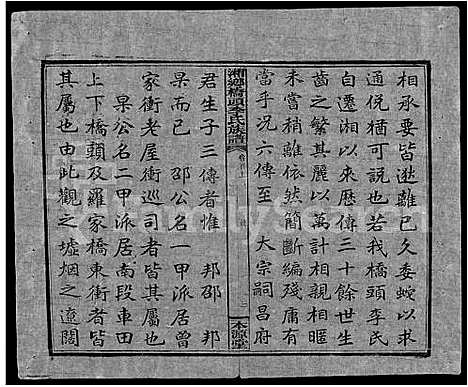 相承要皆遙離已久委蛻以求
通倪猶可說也若我橋頭李氏
自遷湘以來歷傳三十餘世生
齒之繁其麗以萬計相親相暱
未嘗稍離依然簡斷編殘庸有
當乎況六傳至 大宗嗣昌府
湘鄉橋頭李氏族譜
本源堂
君生子三傳者惟 邦邵 邦
杲而已 邵公名一甲派居曾
家衝老屋衝巡司者皆其屬也
杲公名二甲派居南段車田
上下橋頭及羅家橋東衝者皆
其屬也由此觀之墟烟之遼闊